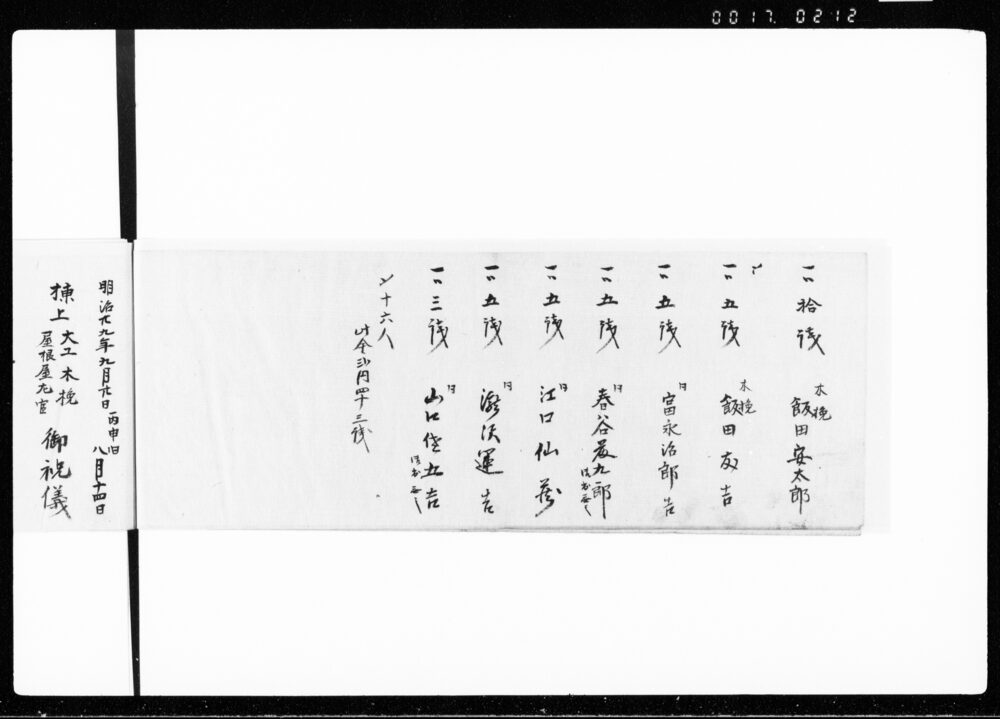 0017. 0212
一、拾銭 木挽 飯田安太郎
一、五銭 木挽 飯田友吉
一、五銭 同 富永治郎吉
一、五銭 同 春谷友九郎
一、五銭 同 江口仙蔵
一、五銭 同 瀧沢運吉
一、三銭 同 山口佐五吉
〆十六人
此金弐円四十三銭
明治廿九年九月廿日 丙申旧八月十四日
棟上 大工 木挽 屋根屋 左官 御祝儀